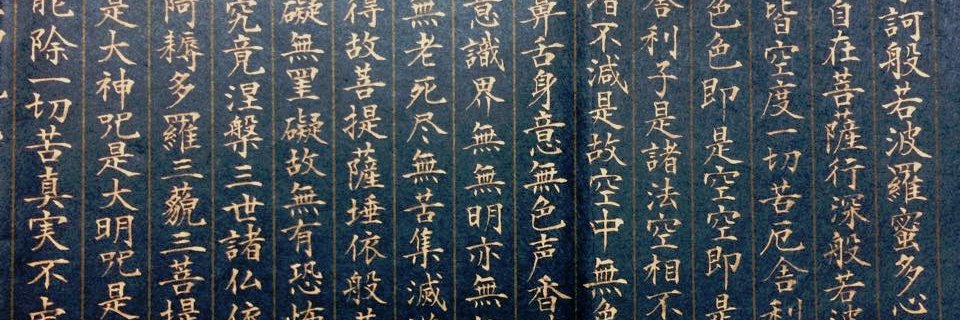 訶般若波羅蜜多心
自在菩薩行深般若波
皆空度一切苦厄舍利
色色即是空空即是
舎利子是諸法空相不
不減是故空中無色
鼻舌身意無色声香
意識界無無明亦無
無老死尽無苦集滅
得故菩提薩埵依般若
礙無罣礙故無有恐怖
究竟涅槃三世諸仏依
阿耨多羅三藐三菩提
是大神咒是大明咒是
能除一切苦真実不虚